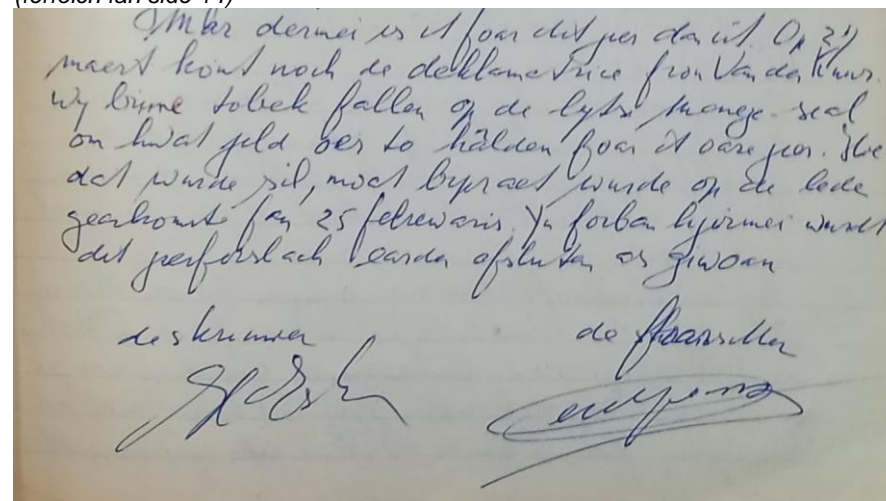 (ferfolch fan side 14)
Mar dermei is it foar dit jier dan út. Op 21
maert komt noch de deklamatrice frou Van der
Wy binne tobek fallen op de lytse manege-seal
om hwat jild oer to hâlden foar it oare jier. Hoe
dat wurde sil, moat bipraet wurde op de lede
gearkomste fan 25 febrewaris. Yn forban hjirmei wurdt
dit jierforslach earder ofsluten as gewoan
de skriuwer
de foarsitter